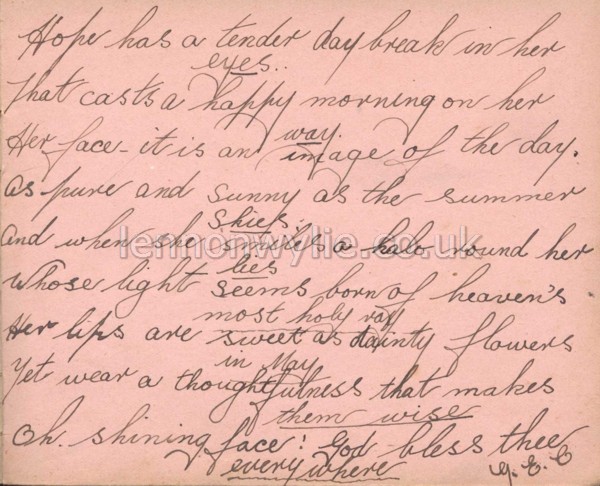 Hope has a tender day break in her
eyes..
That casts a happy morning on her
way.
Her face - it is an image of the day.
As pure and sunny as the summer
skies.
And when she smiles a halo round her
lies
Whose light seems born of heaven's
most holy ray
Her lips are sweet as dainty flowers
in May
Yet wear a thoughtfulness that makes
them wise
Oh. shining face! God bless thee
everywhere
G. E. C
lennonwylie.co.uk